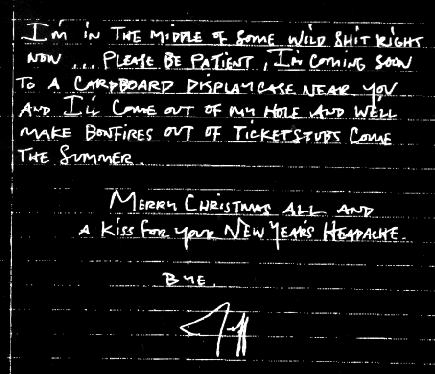 I'm in the middle of some wild shit right
now ... Please be patient, I'm coming soon
to a cardboard display case near you
and I'll come out of my hole and we'll
make bonfires out of ticketstubs come
the summer.
Merry Christmas all and
a kiss for your New Year's headache.
Bye.
Jeff